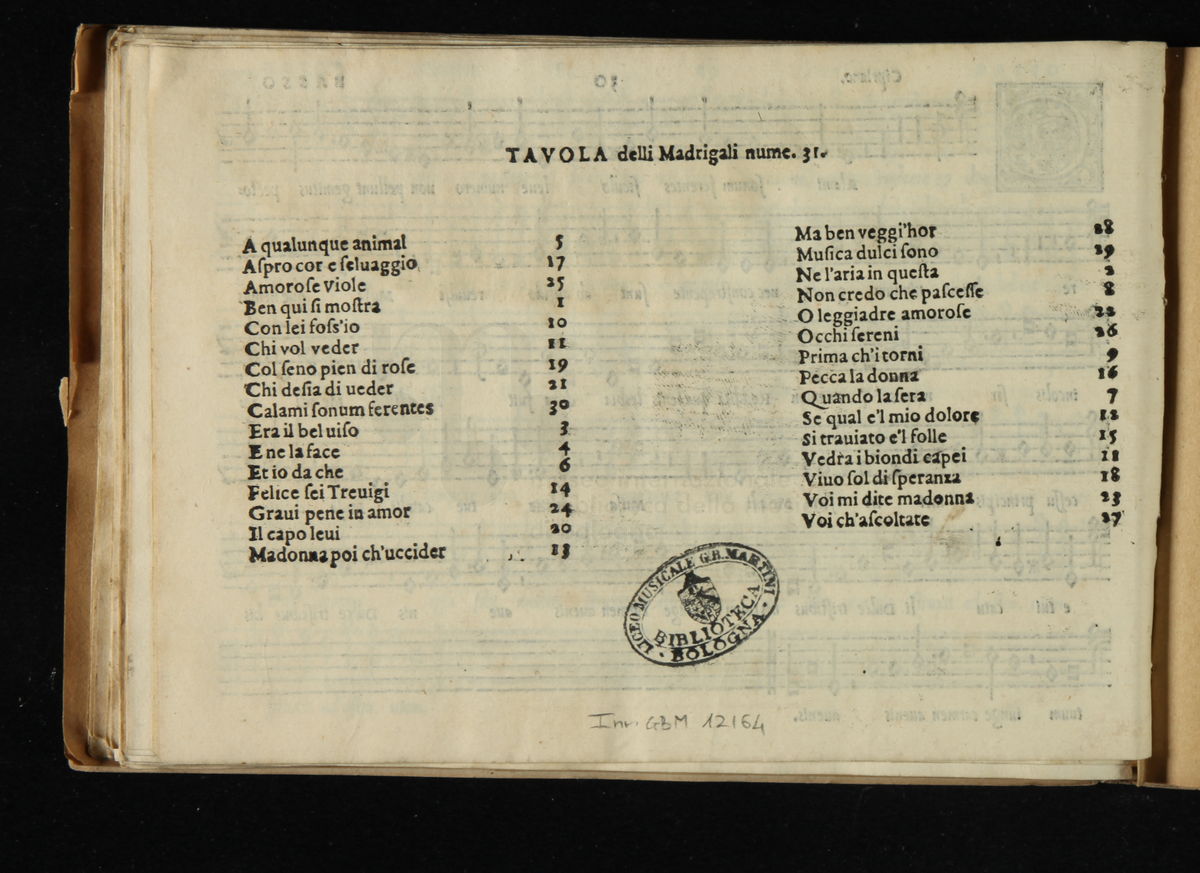 TAVOLA delli Madrigali nume. 31.
A qualunque animal 5
Aſpro cor e ſeluaggio 17
Amoroſe viole 25
Ben qui ſi moſtra 1
Con lei foſs'io 10
Chi vol veder 11
Col ſeno pien di roſe 19
Chi deſia di ueder 21
Calami ſonum ferentes 30
Era il bel uiſo 3
E ne la face 4
Et io da che 6
Felice ſei Treuigi 14
Graui pene in amor 24
Il capo leui 20
Madonna poi ch'uccider 13
Ma ben veggi'hor 28
Muſica dulci ſono 29
Ne l'aria in queſta 2
Non credo che paſceſſe 8
O leggiadre amoroſe 22
Occhi ſereni 26
Prima ch'i torni 9
Pecca la donna 16
Quando la ſera 7
Se qual e'l mio dolore 12
Si trauiato e'l folle 15
Vedra i biondi capei 11
Viuo ſol di ſperanza 18
Voi mi dite madonna 23
Voi ch'aſcoltate 27
LICEO MUSICALE G.B. MARTINI
BIBLIOTECA
· BOLOGNA ·
Inv. GBM 12164